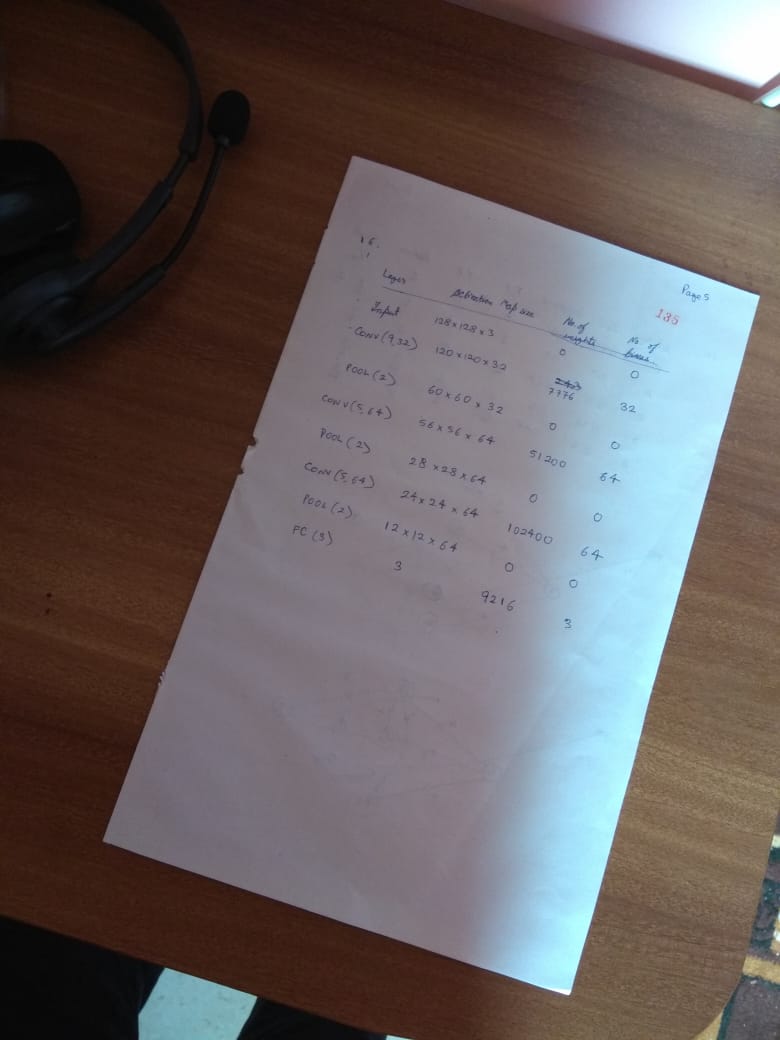 Page 5
135
16.
1
Layer Activation Map size No of weights No of biases
Input 128×128×3 0 0
CONV(9,32) 120×120×32 7776 32
POOL(2) 60×60×32 0 0
CONV(5,64) 56×56×64 51200 64
POOL(2) 28×28×64 0 0
CONV(5,64) 24×24×64 102400 64
POOL(2) 12×12×64 0 0
FC(3) 3 9216 3